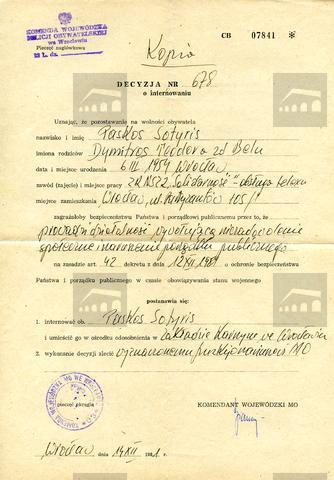 KOMENDA WOJEWÓDZKA
MILICJI OBYWATELSKIEJ
we Wrocławiu
Pieczęć nagłówkowa
L. dz.
Kopia
CB 07841 *
DECYZJA NR 678
o internowaniu
Uznając, że pozostawanie na wolności obywatela
nazwisko i imię Paskos Sotyris
imiona rodziców Dymitros Teodora zd Belu
data i miejsce urodzenia 6 III 1954 Wrocław
nawód (zajęcie) i miejsce pracy "Solidarność" - obsługa telexu
miejsce zamieszkania Wrocław, ul. 105/1
zagrażałoby bezpieczeństwu Państwa i porządkowi publicznemu przez to, że
prowadzi działalność wywołującą niezadowolenie
społeczne i naruszenie porządku publicznego
na zasadzie art. 42 dekretu z dnia 12 XII 1981 o ochronie bezpieczeństwa
Państwa i porządku publicznego w czasie obowiązywania stanu wojennego
postanawia się:
1. internować ob. Paskos Sotyris
i umieścić go w ośrodku odosobnienia w Zakładzie Karnym we Wrocławiu
2. wykonanie decyzji zlecić wyznaczonemu funkcjonariuszowi MO
pieczęć okrągła
KOMENDANT WOJEWÓDZKI MO
Wrocław dnia 14 XII 1981